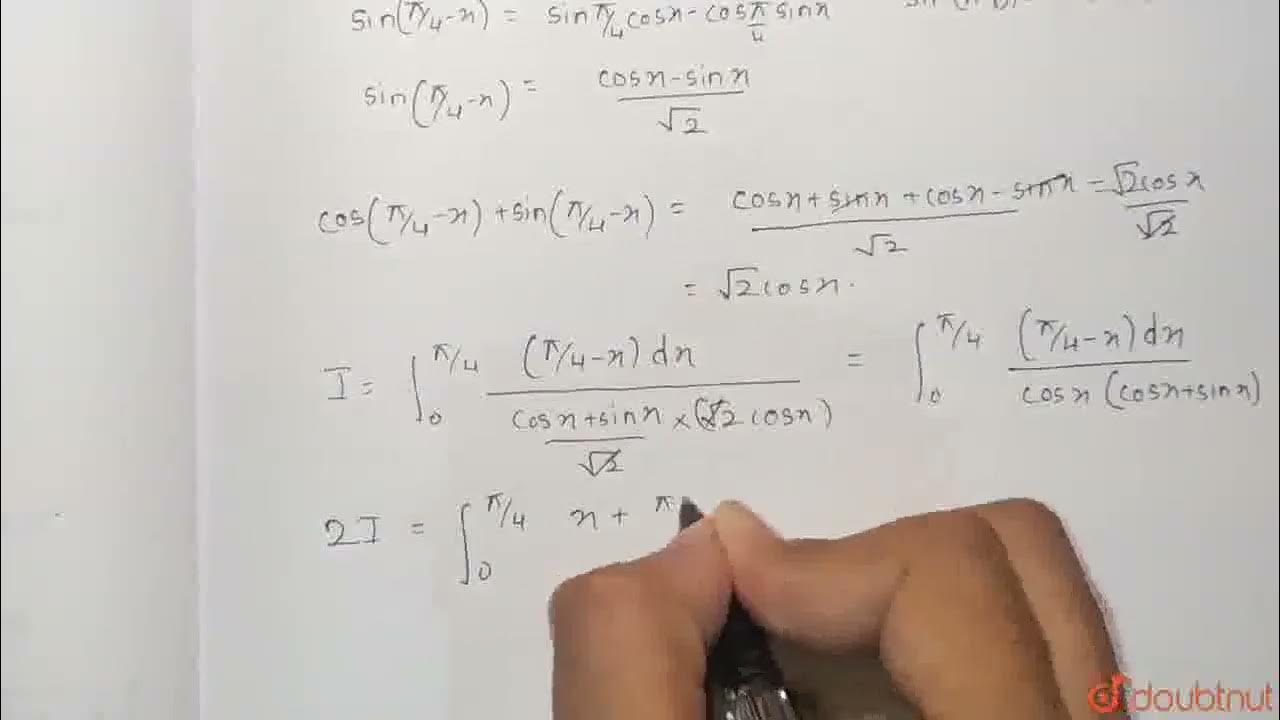 sin(π/4-x) = sin π/4 cosx - cos π/4 sinx
sin(π/4-x) = cosx-sinx / √2
cos(π/4-x)+sin(π/4-x) = cosx+sinx+cosx-sinx / √2 = √2cosx / √2
= √2cosx.
I = ∫₀^π/4 (π/4-x)dx / cosx+sinx / √2 × (√2cosx) = ∫₀^π/4 (π/4-x)dx / cosx(cosx+sinx)
2I = ∫₀^π/4 x + π
doubtnut